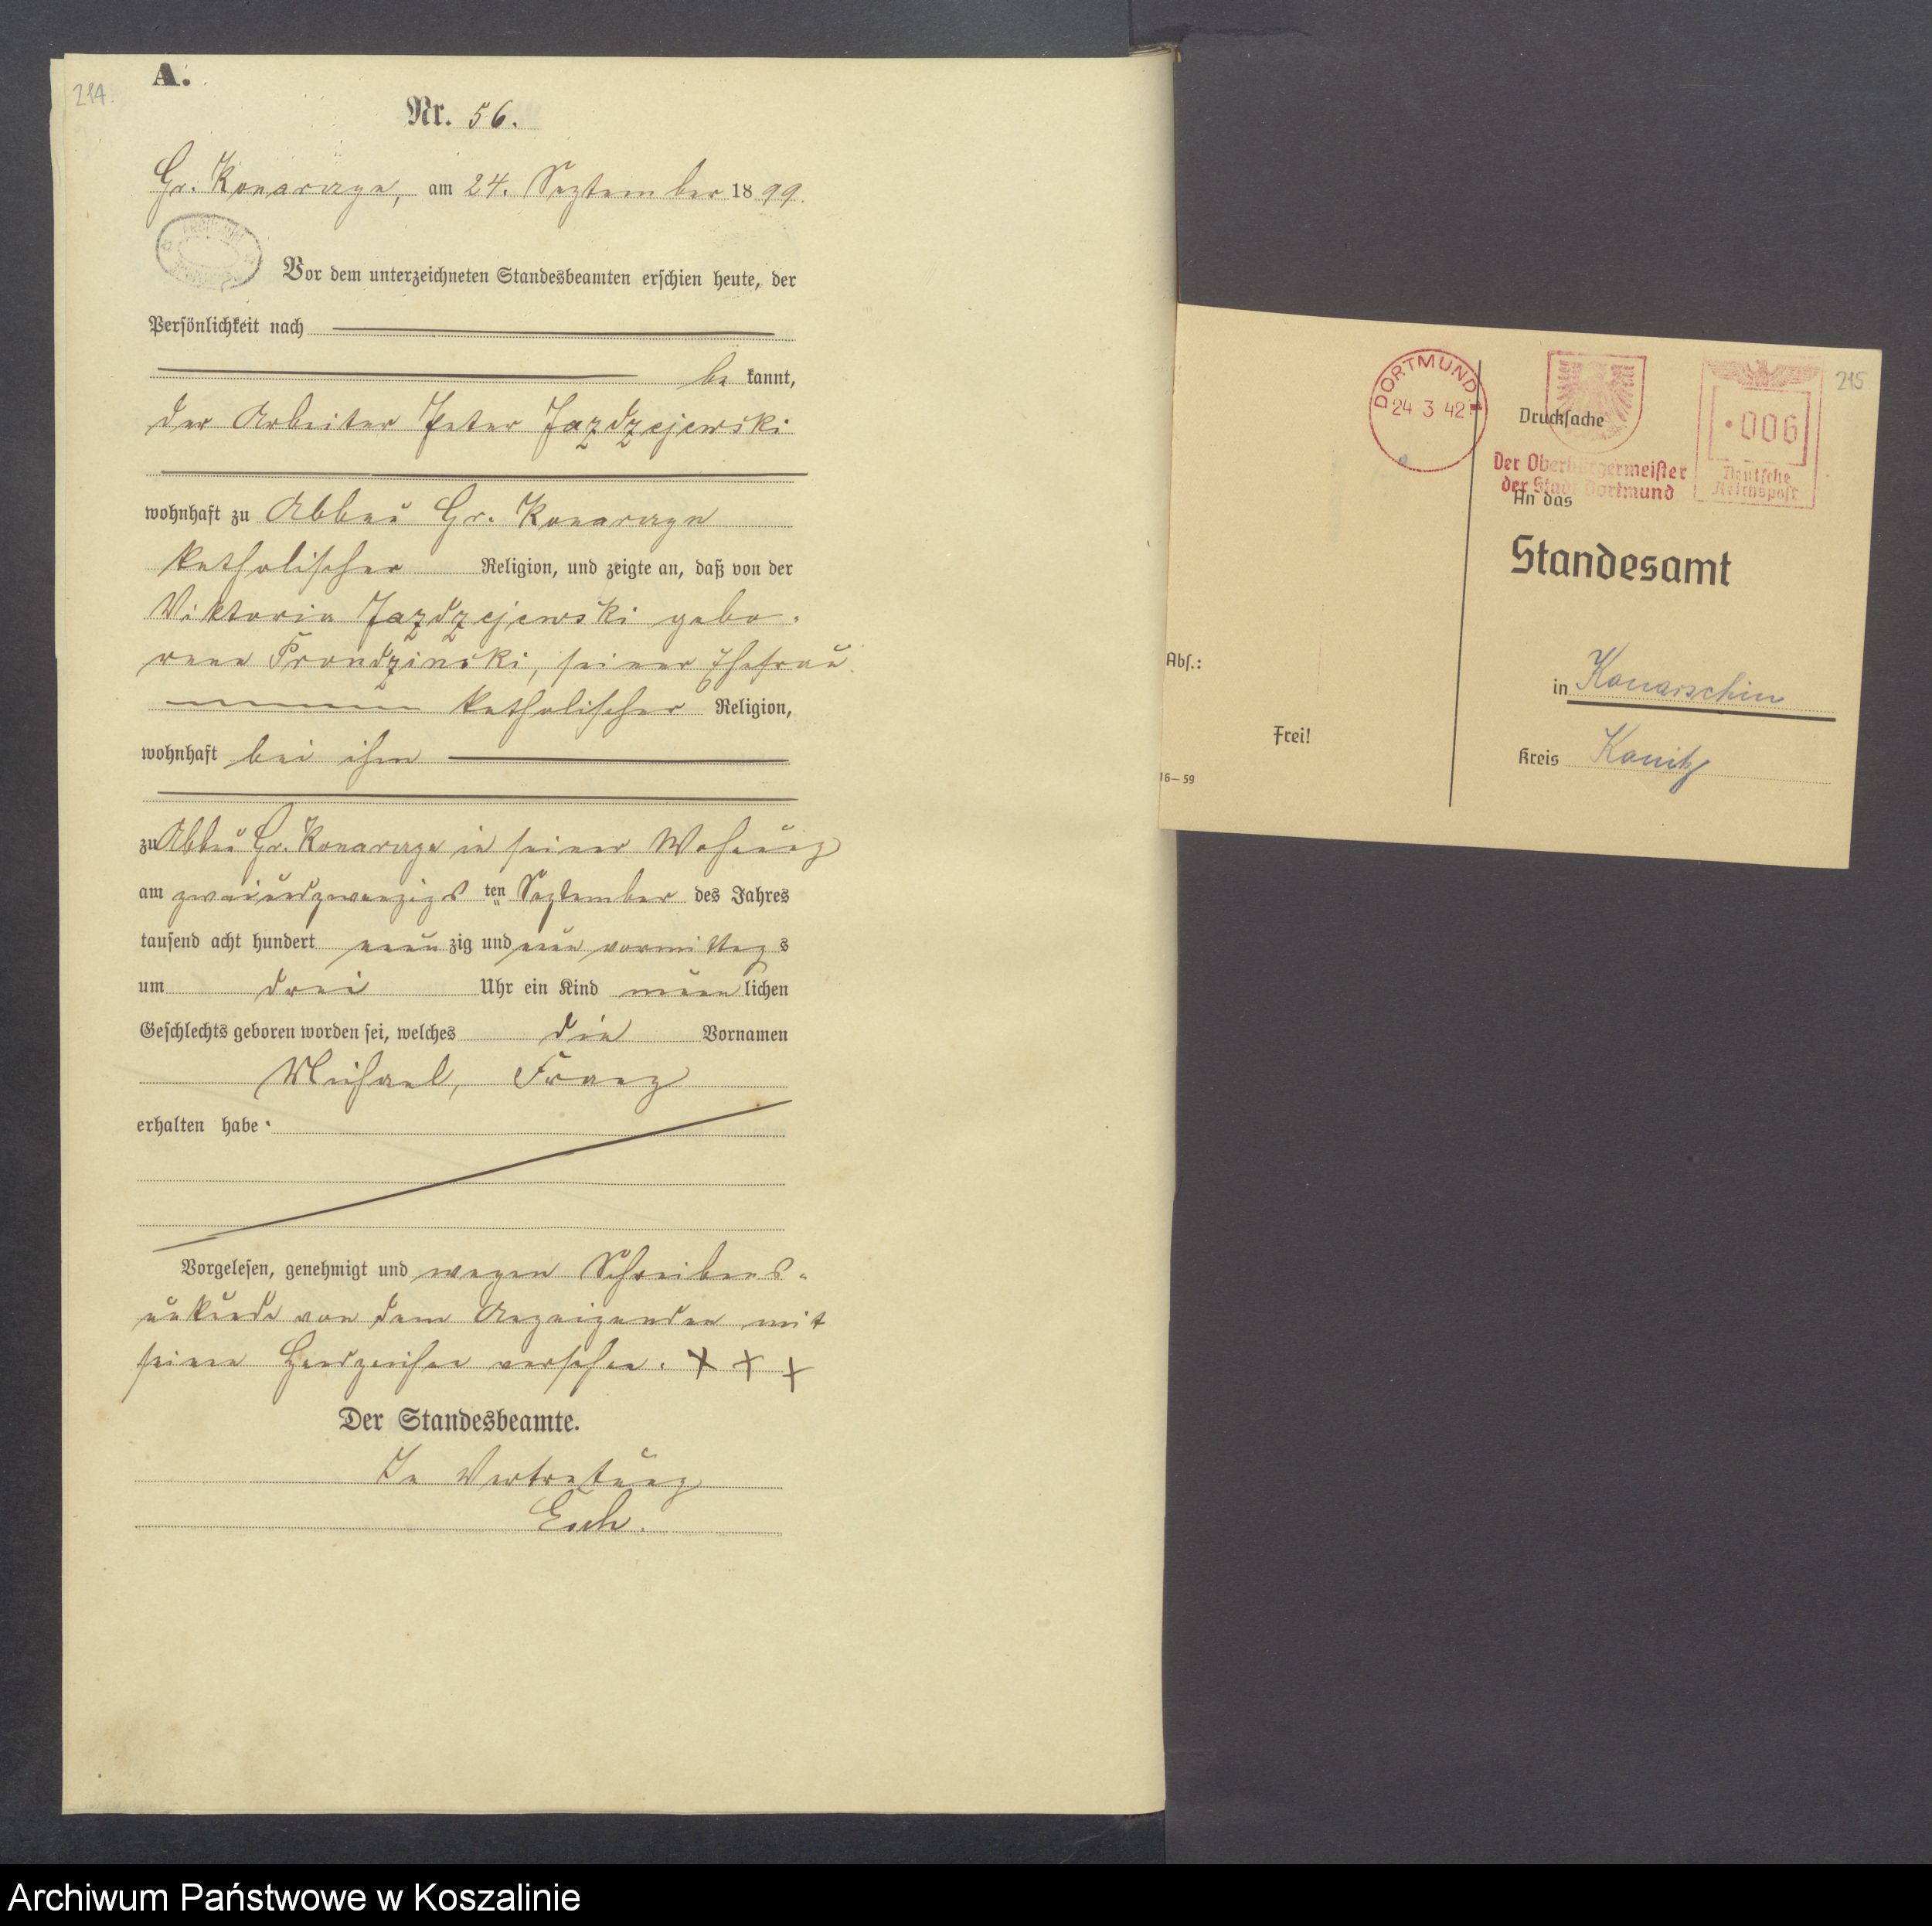 214.
A.
Nr. 56.
Gr. Konarczyn, am 24. September 1899.
Vor dem unterzeichneten Standesbeamten erschien heute, der
Persönlichkeit nach
be kannt,
der Arbeiter Peter Jazdzejewski
wohnhaft zu Abbau Gr. Konarczyn
katholischer Religion, und zeigte an, daß von der
Viktoria Jazdzejewski gebo-
rene Prondzinski, seiner Ehefrau
katholischer Religion,
wohnhaft bei ihm
zu Abbau Gr. Konarczyn in seiner Wohnung
am zweiundzwanzigsten September des Jahres
tausend acht hundert neun zig und neun vormittags
um drei Uhr ein Kind männlichen
Geschlechts geboren worden sei, welches die Vornamen
Michael, Franz
erhalten habe.
Vorgelesen, genehmigt und wegen Schreibens-
unkunde von dem Anzeigenden mit
seinen Handzeichen versehen. + + +
Der Standesbeamte.
In Vertretung
215
DORTMUND
24 3 42
Drucksache
006
Deutsche
Reichspost
Der Oberbürgermeister
der Stadt Dortmund
An das
Standesamt
in Konarschin
Kreis Konitz
Abs.:
Frei!
16–59
Archiwum Państwowe w Koszalinie